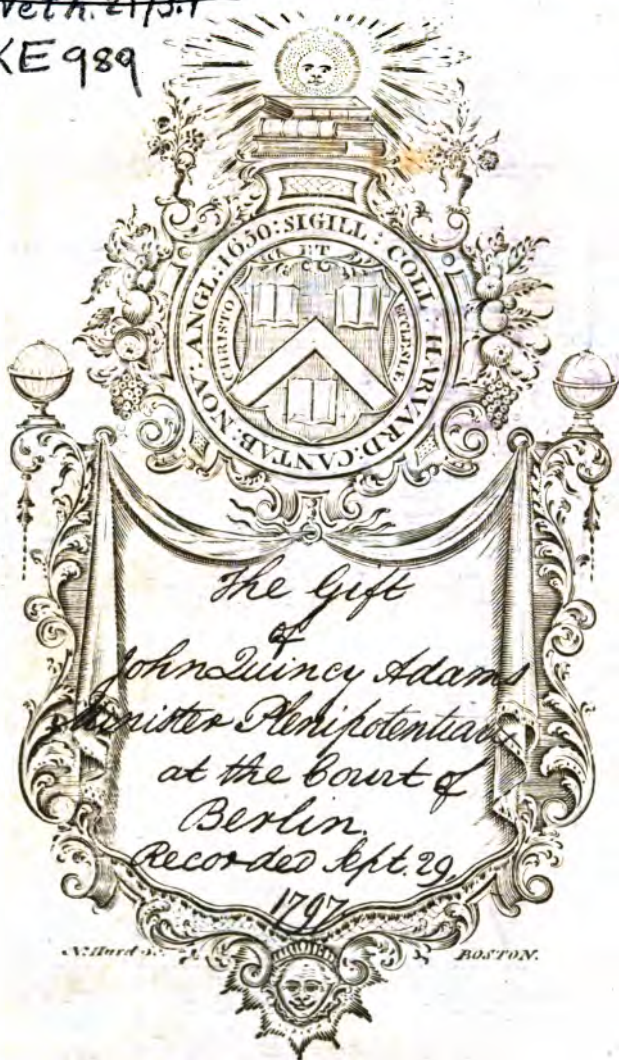 KE 989
SIGILL : COLL : HARVARD : CANTAB : NOV : ANGL : 1650 :
ET
CHRISTO
ECCLESIÆ
The Gift
of
John Quincy Adams
Minister Plenipotentiary
at the Court of
Berlin.
Recorded Sept. 29,
1797
N. Hurd Sc.
BOSTON.